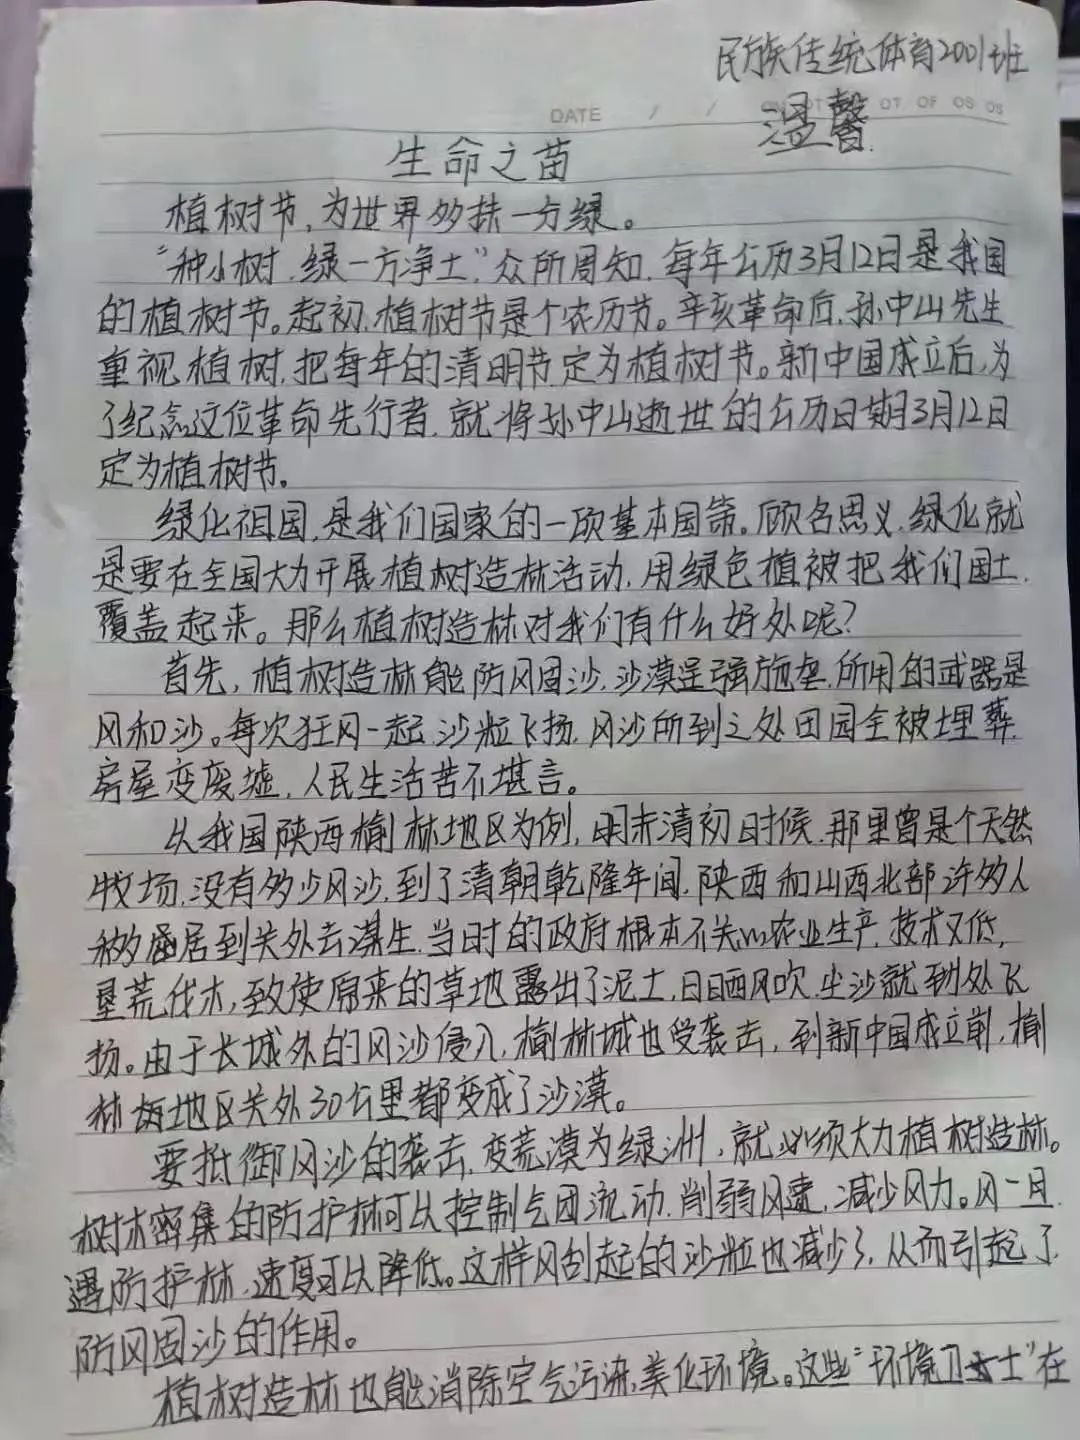 民族传统体育2001班
DATE / /
温馨
生命之苗
植树节,为世界多扶一方绿。
"种小树,绿一方净土,"众所周知,每年公历3月12日是我国
的植树节。起初,植树节是个农历节。辛亥革命后,孙中山先生
重视植树,把每年的清明节定为植树节。新中国成立后,为
了纪念这位革命先行者,就将孙中山逝世的公历日期3月12日
定为植树节。
绿化祖国,是我们国家的一项基本国策。顾名思义,绿化就
是要在全国大力开展植树造林活动,用绿色植被把我们国土
覆盖起来。那么植树造林对我们有什么好处呢?
首先,植树造林能防风固沙,沙漠逞强施虐,所用的武器是
风和沙。每次狂风一起,沙粒飞扬,风沙所到之处田园全被埋葬,
房屋变废墟,人民生活苦不堪言。
从我国陕西榆林地区为例,明末清初时候,那里曾是个天然
牧场,没有多少风沙,到了清朝乾隆年间,陕西和山西北部许多人
移居到关外去谋生,当时的政府根本不关心农业生产,技术又低,
垦荒伐木,致使原来的草地露出了泥土,日晒风吹,尘沙就到处飞
扬。由于长城外的风沙侵入,榆林城也受袭击,到新中国成立前,榆
林地区关外30公里都变成了沙漠。
要抵御风沙的袭击,变荒漠为绿洲,就必须大力植树造林。
树木密集的防护林可以控制气团流动,削弱风速,减少风力。风一旦
遇防护林,速度可以降低。这样风刮起的沙粒也减少了,从而引起了
防风固沙的作用。
植树造林也能消除空气污染,美化环境。这些"环境卫士"在